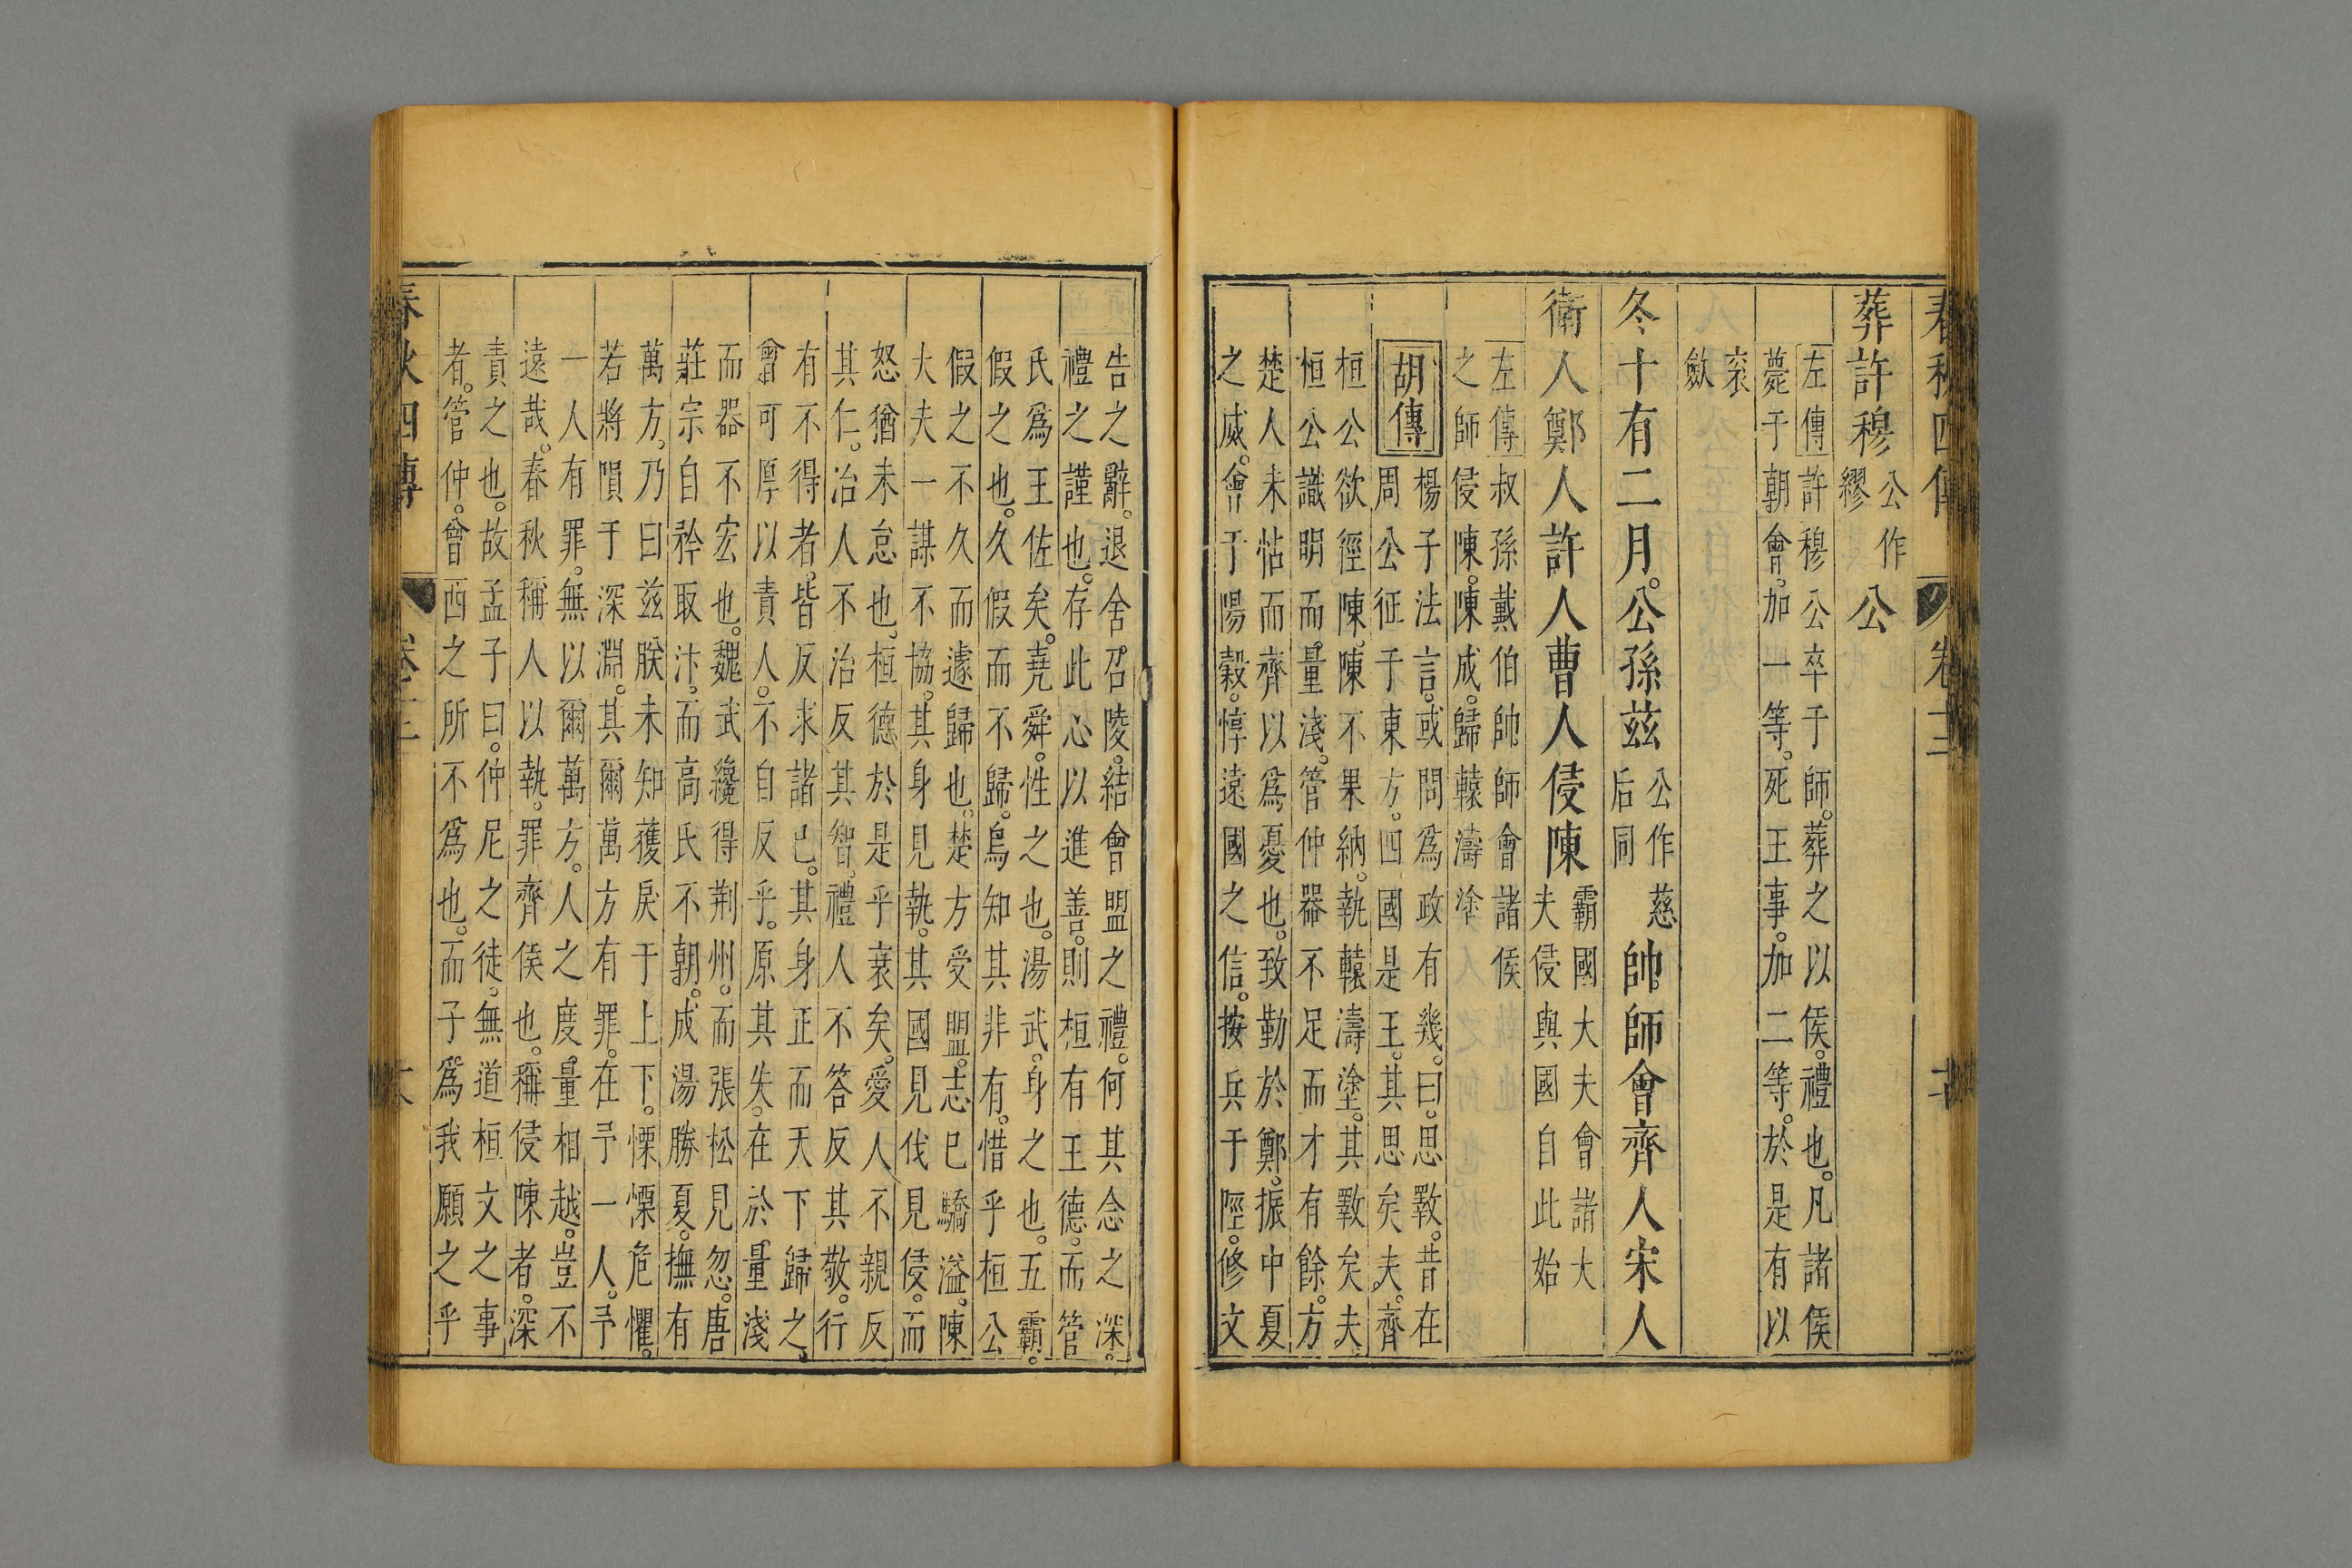 春秋四傳 卷三
葬許穆公作繆公
左傳許穆公卒于師。葬之以侯。禮也。凡諸侯
薨于朝會。加一等。死王事。加二等。於是有以
衮
斂
冬十有二月。公孫茲公作慈后同帥師會齊人宋人
衛人鄭人許人曹人侵陳霸國大夫會諸大夫侵與國自此始
左傳叔孫戴伯帥師會諸侯
之師侵陳。陳成。歸轅濤塗
胡傳
楊子法言。或問爲政有幾。曰。思斁。昔在
周公征于東方。四國是王。其思矣夫。齊
桓公欲徑陳。陳不果納。執轅濤塗。其斁矣夫。
桓公識明而量淺。管仲器不足而才有餘。方
楚人未怗而齊以爲憂也。致勤於鄭。振中夏
之威。會于陽穀。惇遠國之信。按兵于陘。修文
告之辭。退舍召陵。結會盟之禮。何其念之深。
禮之謹也。存此心以進善。則桓有王德。而管
氏爲王佐矣。堯舜。性之也。湯武。身之也。五霸。
假之也。久假而不歸。烏知其非有。惜乎桓公
假之不久而遽歸也。楚方受盟。志已驕溢。陳
大夫一謀不協。其身見執。其國見伐見侵。而
怒猶未怠也。桓德於是乎衰矣。愛人不親反
其仁。治人不治反其智。禮人不答反其敬。行
有不得者。皆反求諸己。其身正而天下歸之。
曾可厚以責人。不自反乎。原其失。在於量淺
而器不宏也。魏武纔得荆州。而張松見忽。唐
莊宗自矜取汴。而高氏不朝。成湯勝夏。撫有
萬方。乃曰兹朕未知獲戾于上下。慄慄危懼。
若將隕于深淵。其爾萬方有罪。在予一人。予
一人有罪。無以爾萬方。人之度量相越。豈不
遠哉。春秋稱人以執。罪齊侯也。稱侵陳者。深
責之也。故孟子曰。仲尼之徒。無道桓文之事
者。管仲。曾西之所不爲也。而子爲我願之乎
春秋四傳 卷三